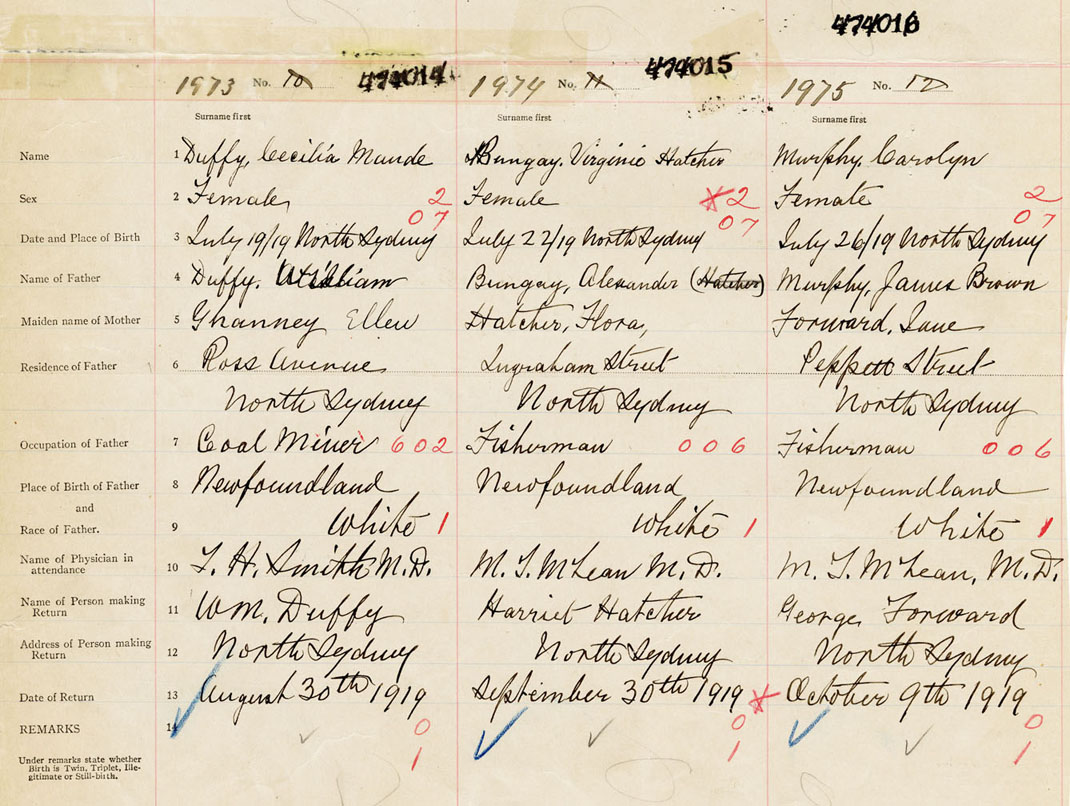 474016
474014 474015
1973 No. 10 1974 No. 11 1975 No. 12
Surname first Surname first Surname first
Name 1 Duffy, Cecilia Maude Bungay, Virginie Hatcher Murphy, Carolyn
Sex 2 Female 2 Female 2 Female 2
07 07 07
Date and Place of Birth 3 July 19/19 North Sydney July 22/19 North Sydney July 26/19 North Sydney
Name of Father 4 Duffy, William Bungay, Alexander (Hatcher) Murphy, James Brown
Maiden name of Mother 5 Ghanney Ellen Hatcher, Flora, Forward, Jane
Residence of Father 6 Ross Avenue Ingraham Street Peppett Street
North Sydney North Sydney North Sydney
Occupation of Father 7 Coal Miner 602 Fisherman 006 Fisherman 006
Place of Birth of Father 8 Newfoundland Newfoundland Newfoundland
and
Race of Father. 9 White 1 White 1 White 1
Name of Physician in
attendance 10 L. H. Smith M.D. M. T. McLean M.D. M. T. McLean, M.D.
Name of Person making
Return 11 WM. Duffy Harriet Hatcher George Forward
Address of Person making
Return 12 North Sydney North Sydney North Sydney
Date of Return 13 August 30th 1919 September 30th 1919 October 9th 1919
REMARKS 14 0 0 0
Under remarks state whether
Birth is Twin, Triplet, Ille-
gitimate or Still-birth.
1 1 1